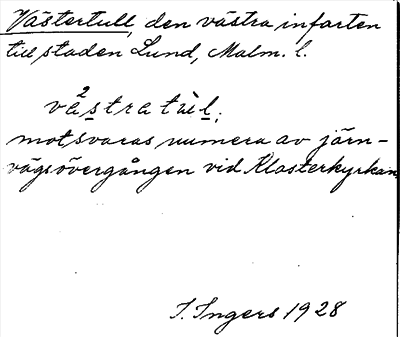 Västertull, den västra infarten
till staden Lund, Malm. l.
vä²stratùl;
motsvaras numera av järn-
vägsövergången vid Klosterkyrkan.
I. Ingers 1928